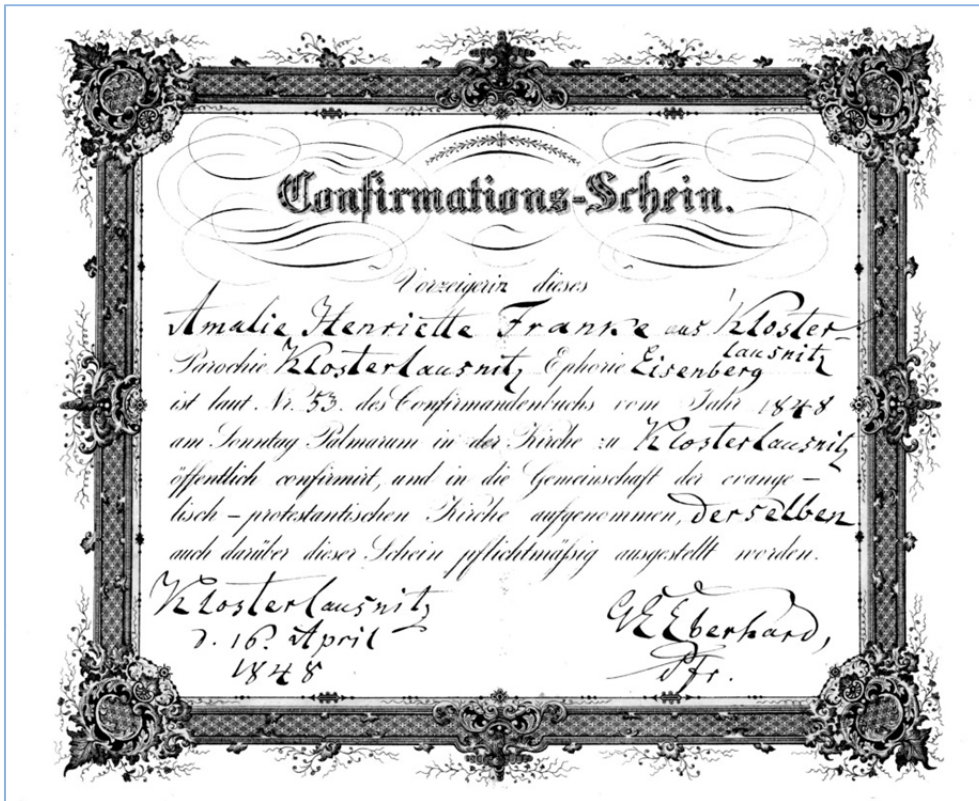 Confirmations-Schein.
Vorzeigerin dieses
Amalie Henriette Franke aus Kloster-
lausnitz
Parochie Klosterlausnitz Ephorie Eisenberg
ist laut Nr. 53. des Confirmandenbuchs vom Jahr 1848
am Sonntag Palmarum in der Kirche zu Klosterlausnitz
öffentlich confirmirt, und in die Gemeinschaft der evange-
lisch-protestantischen Kirche aufgenommen, derselben
auch darüber dieser Schein pflichtmäßig ausgestellt worden.
Klosterlausnitz
d. 16. April
1848
Eberhard,
Pfr.